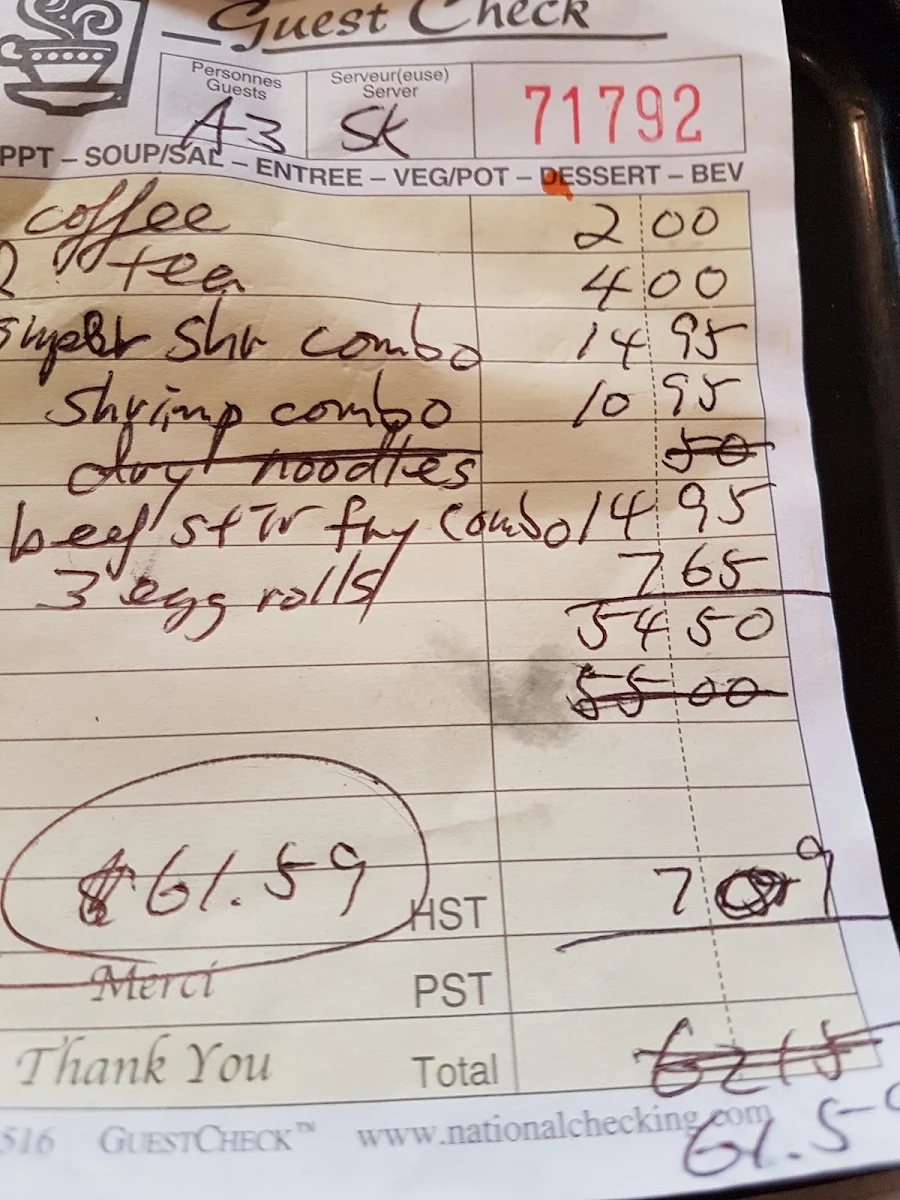 Guest Check
Personnes
Guests
A3
Serveur(euse)
Server
SK
71792
PPT – SOUP/SAL – ENTREE – VEG/POT – DESSERT – BEV
coffee 2 00
2 tea 4 00
shr combo 14 95
shrimp combo 10 95
dry noodles 50
beef stir fry combo 14 95
3 egg rolls 7 65
54 50
55 00
$61.59
HST 7 09
Merci
PST
Thank You
Total 62 15
516 GUESTCHECK™ www.nationalchecking.com
61.59